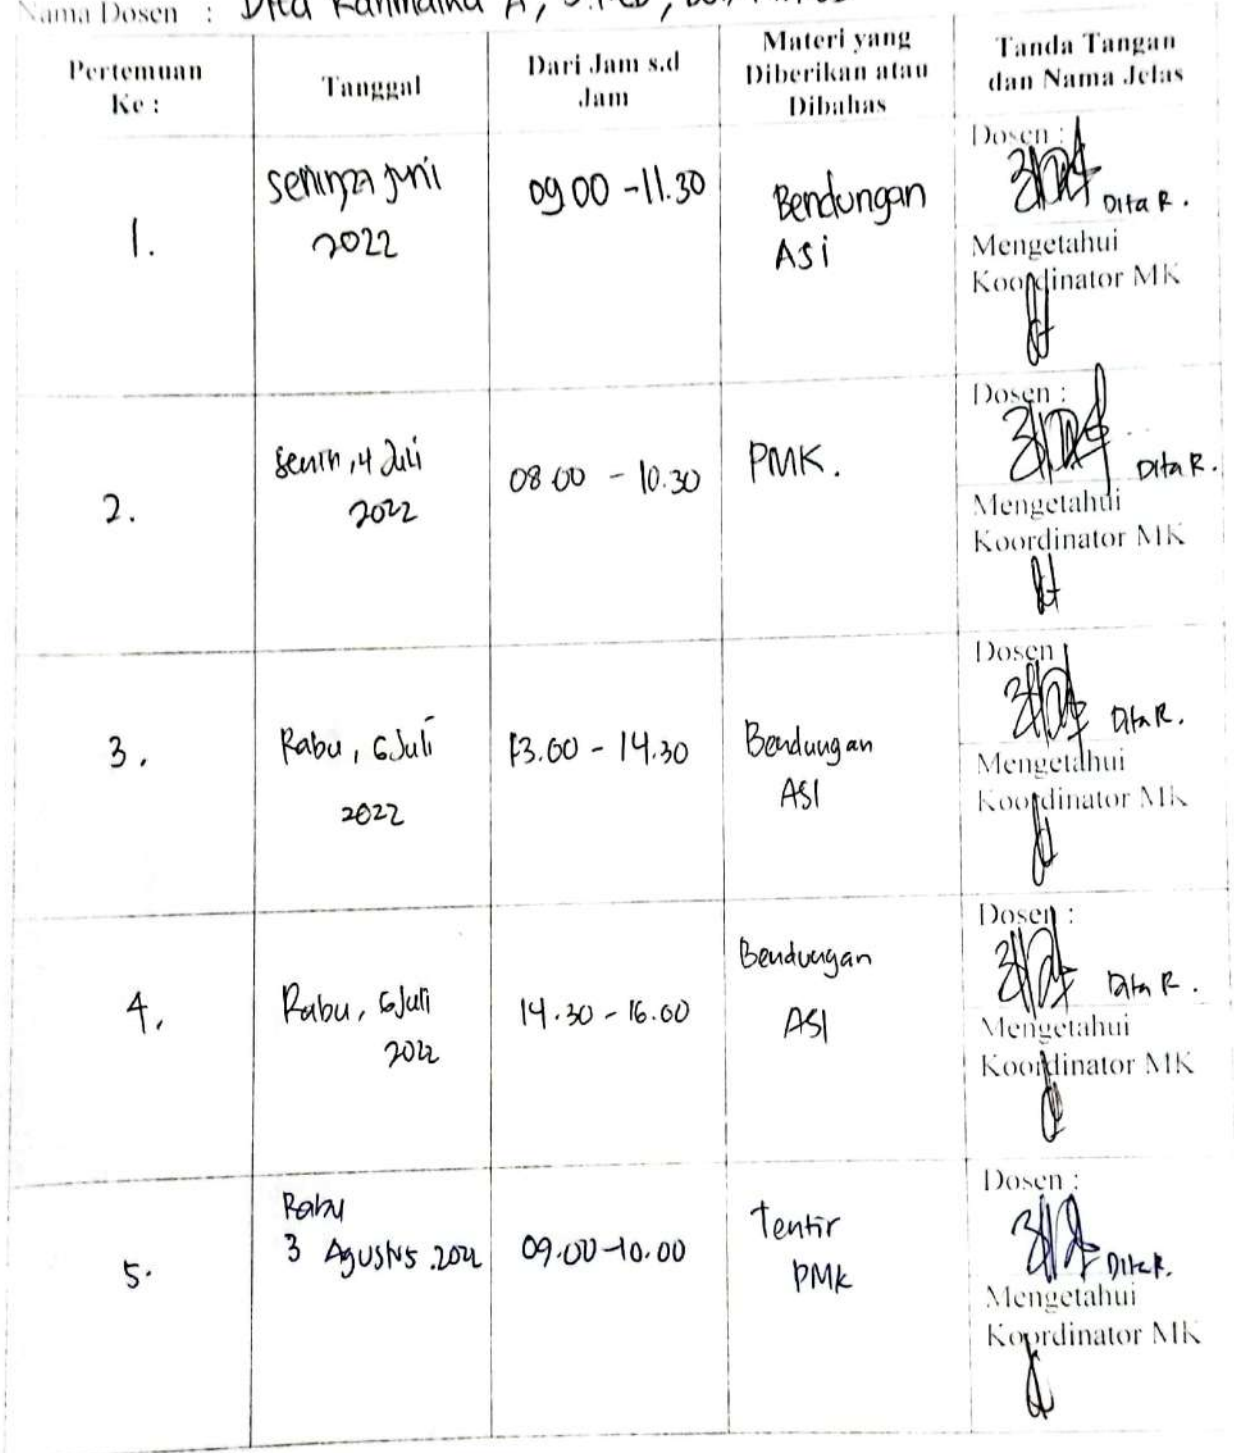 Nama Dosen : Dita
Pertemuan Ke :
Tanggal
Dari Jam s.d Jam
Materi yang Diberikan atau Dibahas
Tanda Tangan dan Nama Jelas
1.
juni
2022
09.00 - 11.30
Bendungan
ASi
Dosen :
Dita R.
Mengetahui
Koordinator MK
2.
Senin, 4 Juli
2022
08.00 - 10.30
PMK.
Dosen :
Dita R.
Mengetahui
Koordinator MK
3.
Rabu, 6 Juli
2022
13.00 - 14.30
Bendungan
ASI
Dosen
Dita R.
Mengetahui
Koordinator MK
4.
Rabu, 6 Juli
2022
14.30 - 16.00
Bendungan
ASI
Dosen :
Dita R.
Mengetahui
Koordinator MK
5.
Rabu
3 Agustus 2022
09.00-10.00
Tentir
PMK
Dosen :
Dita R.
Mengetahui
Koordinator MK